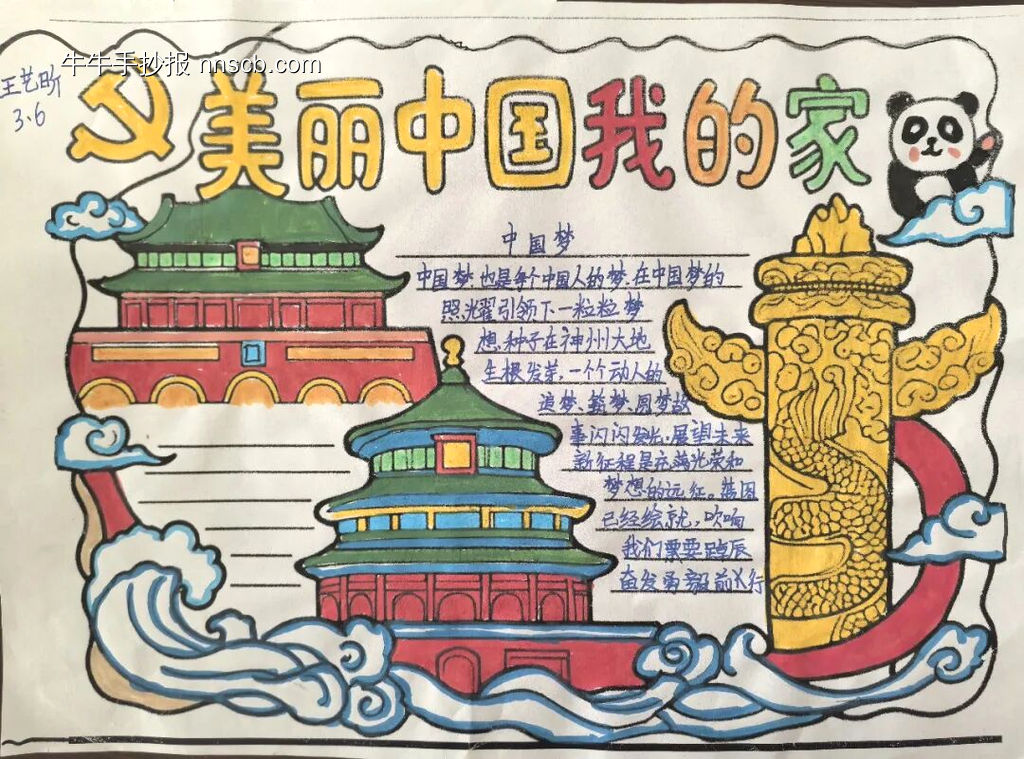 牛牛手抄报 nnsob.com
王艺昕
3.6
美丽中国我的家
中国梦
中国梦.也是每个中国人的梦.在中国梦的
照耀引领下一粒粒梦
想种子在神州大地
生根发芽.一个个动人的
追梦、筑梦、圆梦故
事闪闪发光.展望未来
新征程是充满光荣和
梦想的远征。蓝图
已经绘就,吹响
我们需要踔厉
奋发勇毅前行